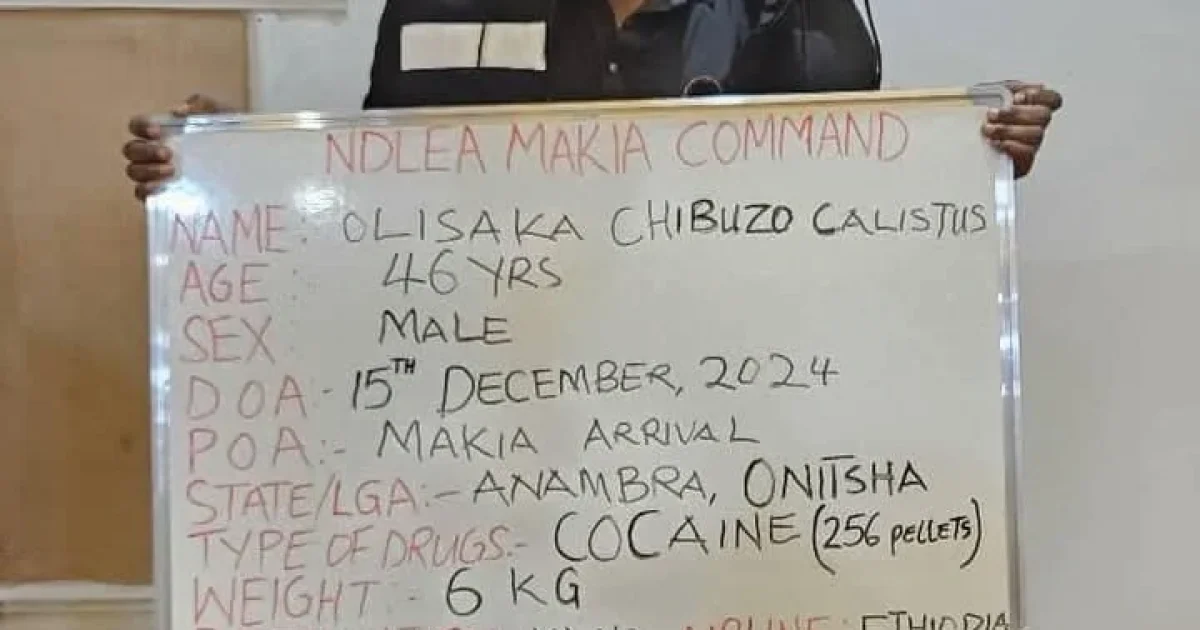 NDLEA MAKIA COMMAND
NAME: OLISAKA CHIBUZO CALISTUS
AGE : 46 YRS
SEX : MALE
DOA - 15TH DECEMBER, 2024
POA:- MAKIA ARRIVAL
STATE/LGA:- ANAMBRA, ONITSHA
TYPE OF DRUGS:- COCAINE (256 PELLETS)
WEIGHT :- 6 KG
ETHIOPIA